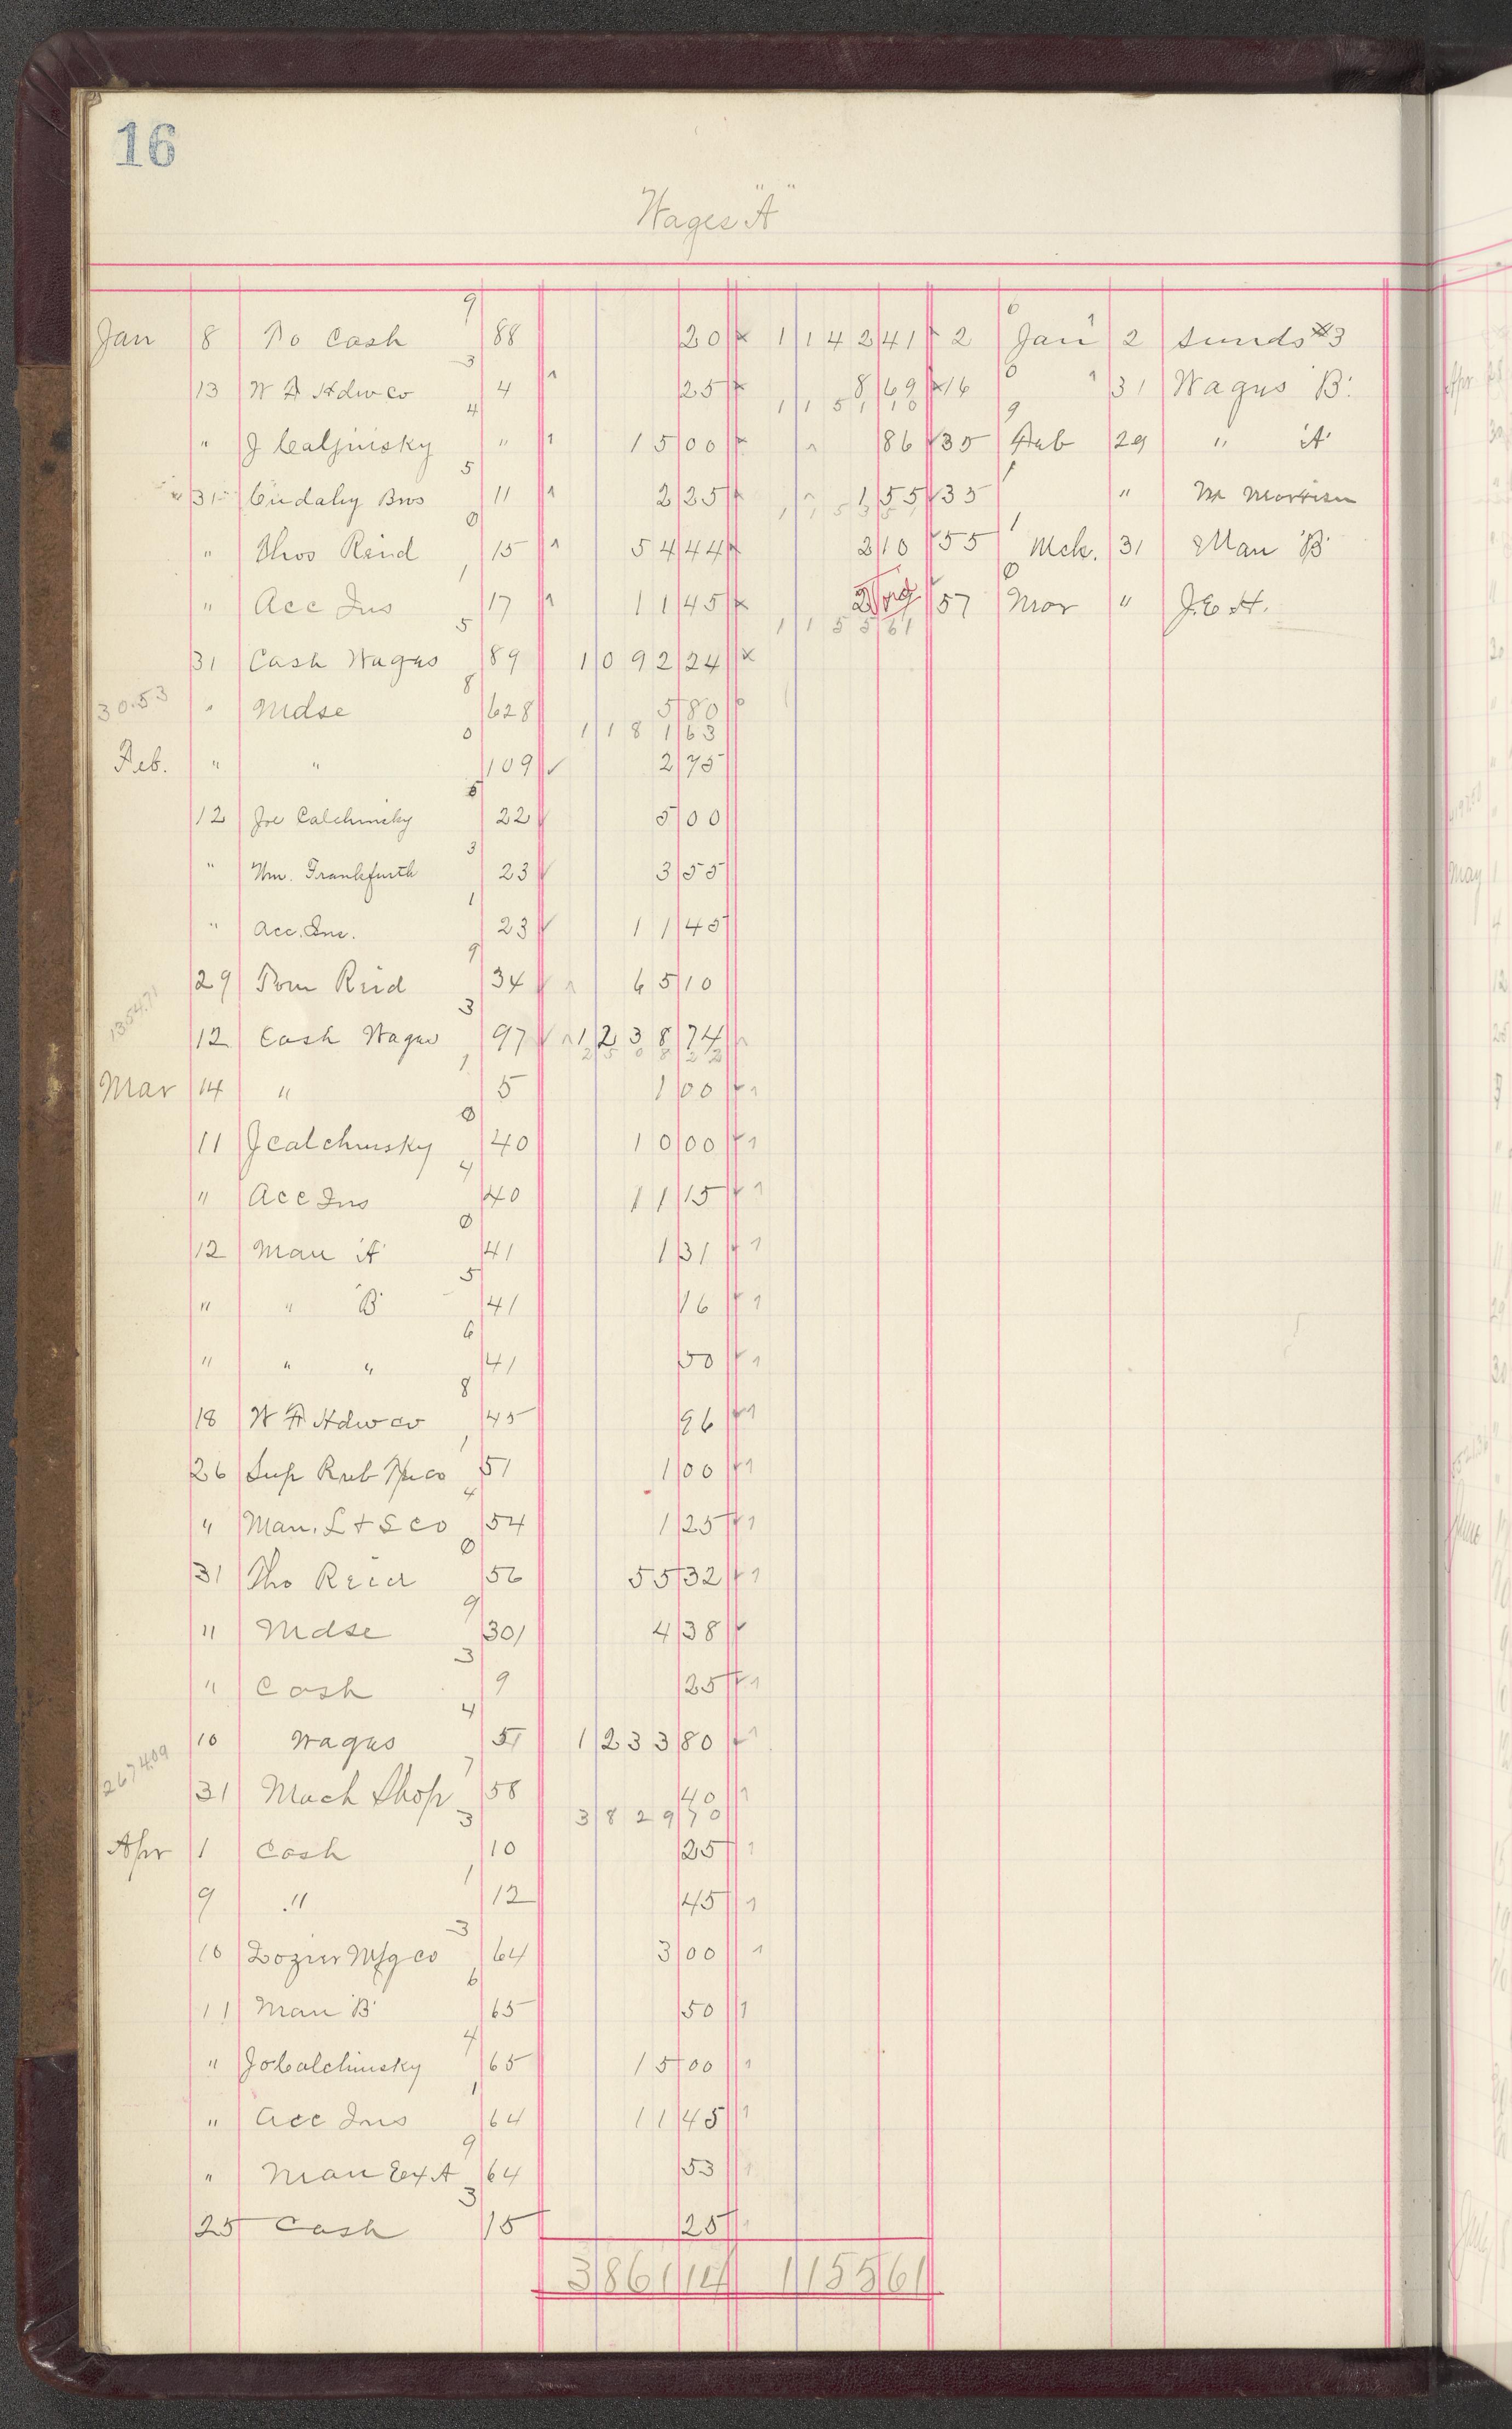 16
Wages "A"
Jan 8 To Cash 9 88 20 x 1142 41 2 Jan 2 Sunds #3
13 W A Hdw co 3 4 25 x 8 69 x 16 31 Wages "B"
1151 10
" J Caljinsky 4 " 15 00 x 86 35 Feb 29 " "A"
31 Cudahy Bros 5 11 2 25 x 1 55 35 " M Morrison
1153 51
" Thos Reid 0 15 54 44 x 2 10 55 Mch. 31 Man "B"
" Acc Ins 1 17 11 45 x 57 Mar " J.E.H.
1155 61
31 Cash Wages 5 89 1092 24 x
30.53 " Mdse 8 628 5 80
1181 63
Feb. " " 0 109 2 75
12 Joe Calchinsky 5 22 5 00
" Wm. Frankfurth 3 23 3 55
" Acc. Ins. 1 23 11 45
29 Tom Reid 9 34 65 10
1354.71 12 Cash Wages 3 97 1238 74
2508 22
Mar 14 " 1 5 1 00
11 J Calchinsky 0 40 10 00
" Acc Ins 4 40 11 15
12 Man "A" 0 41 1 31
" " "B" 5 41 16
" " " 6 41 50
18 W A Hdw co 8 45 96
26 Sup Rub co 1 51 1 00
" Man. L & S Co 4 54 1 25
31 Tho Reid 0 56 55 32
" Mdse 9 301 4 38
" Cash 3 9 25
10 Wages 4 51 1233 80
2674.09 31 Mach Shop 7 58 40
3829 70
Apr 1 Cash 3 10 25
9 " 1 12 45
10 Dozier Mfg co 3 64 3 00
11 Man "B" 6 65 50
" Jo Calchinsky 4 65 15 00
" Acc Ins 1 64 11 45
" Man Ex A 9 64 53
25 Cash 3 15 25
3861 14 1155 61